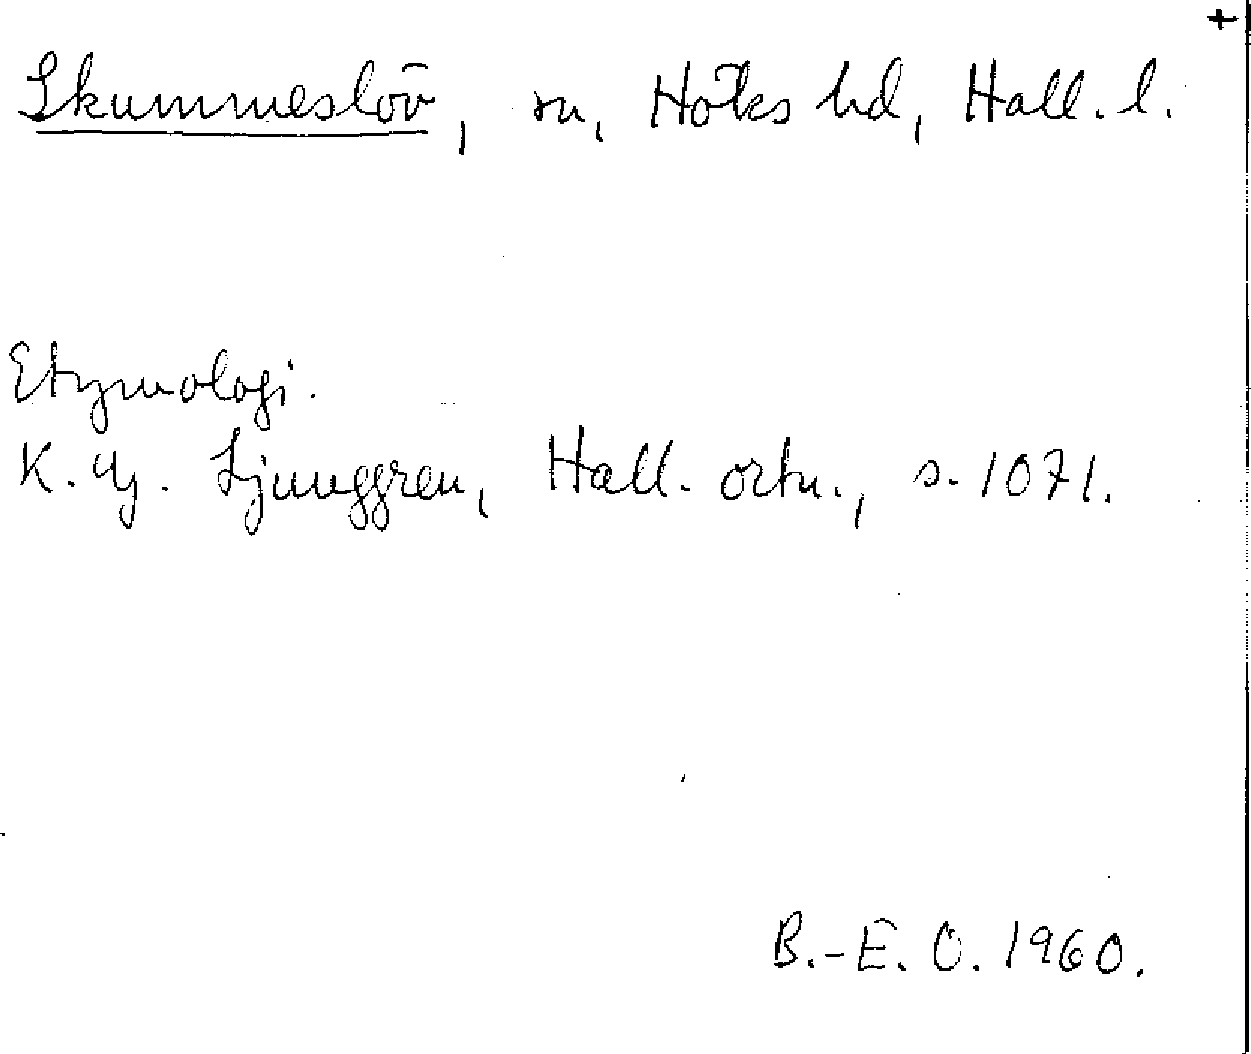 +
Skummeslöv, sn, Höks hd, Hall. l.
Etymologi.
K. G. Ljunggren, Hall. ortn., s. 107 f.
B.-E. O. 1960.